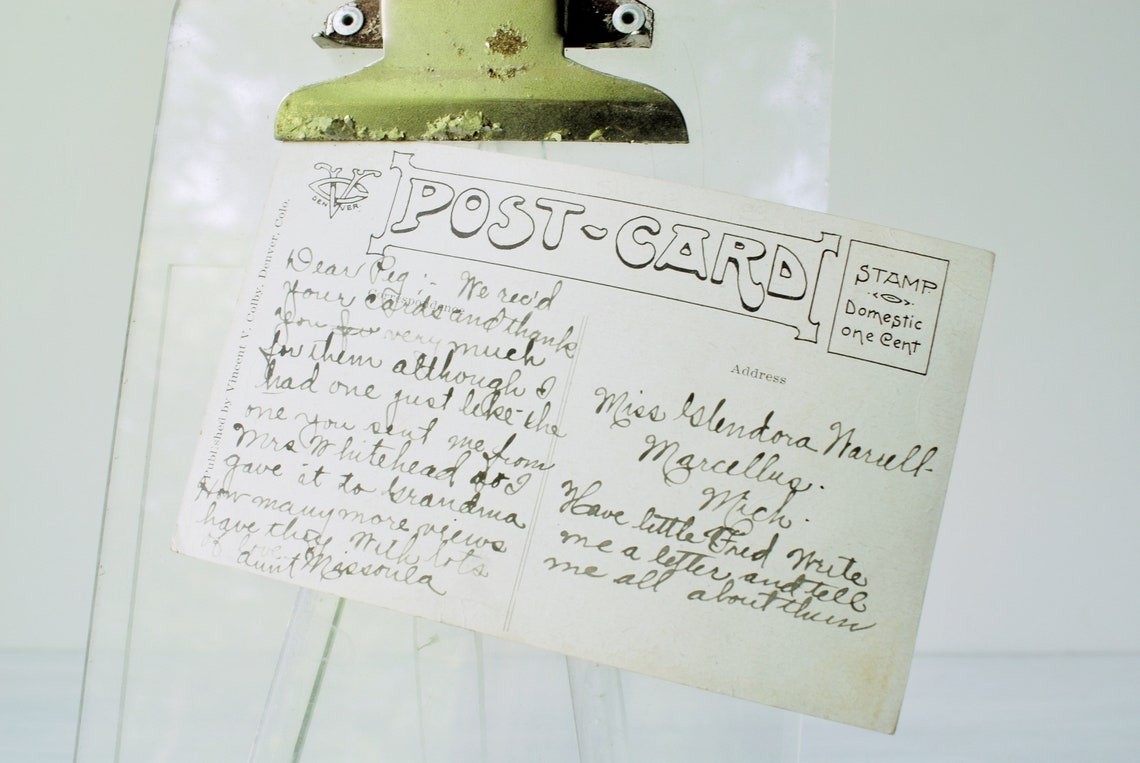 DENVER
POST-CARD
STAMP
Domestic
one Cent
Published by Vincent V. Colby, Denver, Colo.
Correspondence
Address
Dear Peg:- We rec'd
your cards and thank
you for very much
for them although I
had one just like the
one you sent me from
Mrs Whitehead so I
gave it to Grandma
How many more views
have they With lots
of love
aunt Missoula
Miss Glendora
Marcellus.
Mich.
Have little Fred Write
me a letter, and tell
me all about them